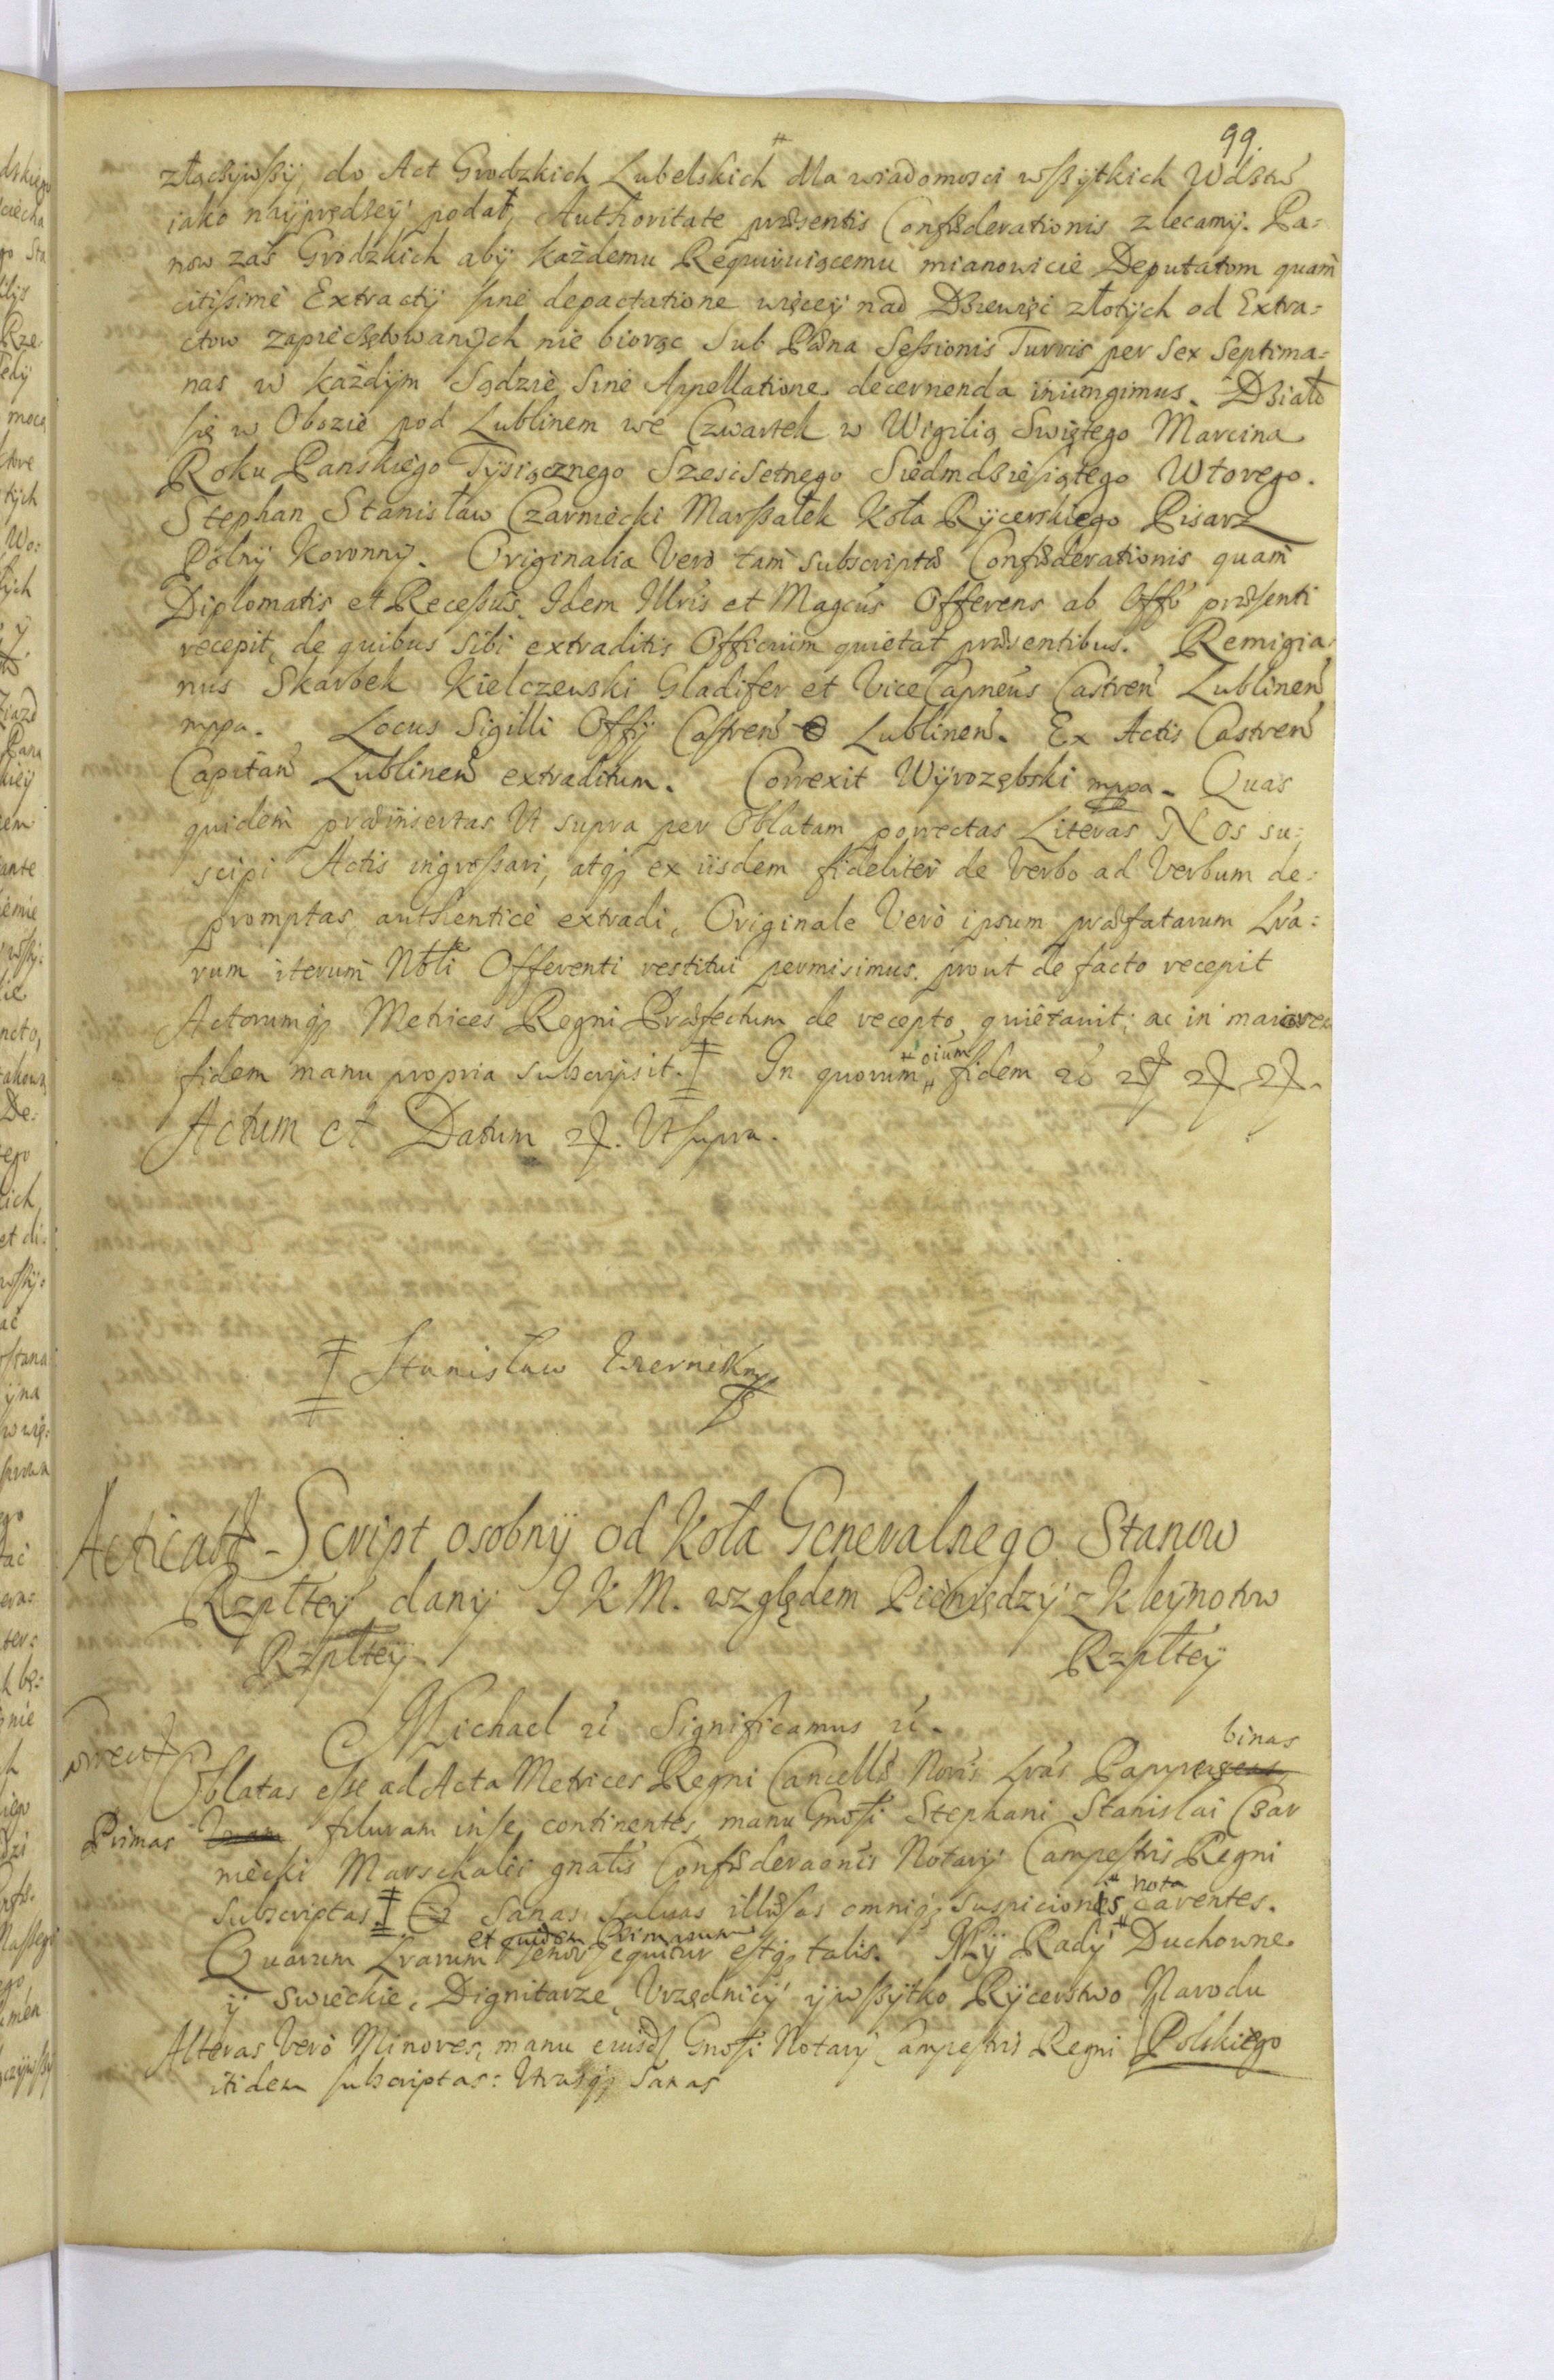 99.
złączywszy, do Act Grodzkich Lubelskich dla wiadomosci wszytkich Wdztw
iako nayprędzey podał, Authoritate præsentis Confœderationis zlecamy. Pa:
now zaś Grodzkich aby każdemu Requiruiącemu mianowicie Deputatom quam
citissimè Extracty sinè depactatione więcey nad Dziewięć złotych od Extra:
ctow zapieczętowanych nie biorąc sub Pœna Sessionis Turris per sex Septima:
nas w każdym Sądzie, sinè Appellatione decernenda iniungimus. Działo
się w Obozie pod Lublinem we Czwartek w Wigilią Swiętego Marcina
Roku Panskiego Tysiącznego Szescsetnego Siedmdziesiątego Wtorego.
Stephan Stanisław Czarniecki Marszałek Koła Rycerskiego Pisarz
Polny Koronny. Originalia Verò tam subscriptæ Confœderationis quam
Diplomatis et Recessus Idem Illris et Magcus Offerens ab Offo præsenti
recepit, de quibus sibi extraditis Officium quietat præsentibus. Remigia:
nus Skarbek Kielczewski Gladifer et ViceCapneus Castren Lublinen
mppa. Locus Sigilli Offy Castren Lublinen. Ex Actis Castren
Capitan Lublinen extraditum. Correxit Wyrozębski mppa. Quas
quidem præinsertas Ut supra per Oblatam porrectas Literas Nos su:
scipi Actis ingrossari, atq ex iisdem fideliter de Verbo ad Verbum de:
promptas, authenticè extradi, Originale Verò ipsum præfatarum Lra:
rum iterum Nbli Offerenti restitui permisimus. prout de facto recepit
Actorumq Metrices Regni Præfectum de recepto, quietauit; ac in maiorem
fidem manu propria subscripsit. ‡ In quorum oium fidem
Actum et Datum Ut supra.
‡ Stanisław
Acticatt Script osobny od Koła Generalnego Stanow
Rzpłtey dany J K M. względem Pieniędzy z kleynotow
Rzpłtey Rzpłtey
Michael rć Significamus rć.
binas
Oblatas esse ad Acta Metrices Regni Cancellæ Nrис Lras
Primas filuram in se continentes, manu Gnosi Stephani Stanislai Czar
niecki Marschalci gnalis Confœderaonis Notarÿ Campestris Regni
nota
subscriptas. ‡ Sanas saluas illæsas omniq suspicionis carentes.
et quidem Primarum
Quarum Lrarum tenor sequitur estq talis. My Rady Duchowne
y swieckie, Dignitarze, Vrzędnicy y wszytko Rycerstwo Narodu
Alteras Verò Minores, manu eiusd Gnosi Notarÿ Campestris Regni Polskiego
itidem subscriptas: Utrasq Sanas